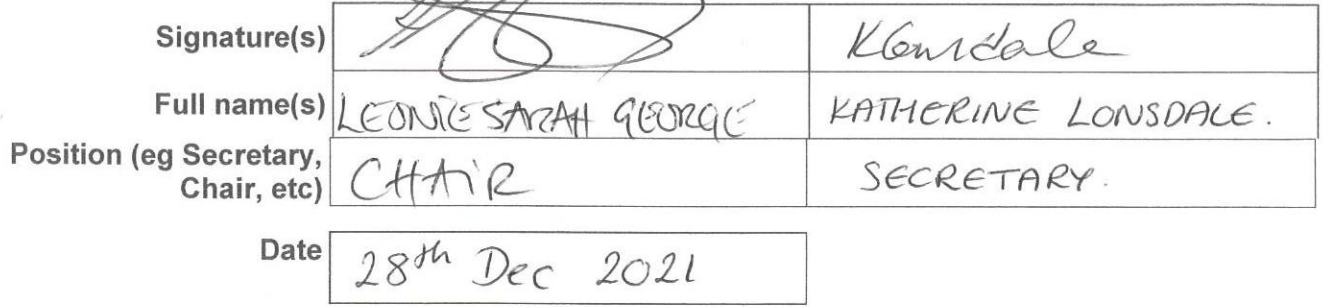 Signature(s) KLonsdale
Full name(s) LEONIE SARAH GEORGE KATHERINE LONSDALE.
Position (eg Secretary,
Chair, etc) CHAIR SECRETARY.
Date 28th Dec 2021